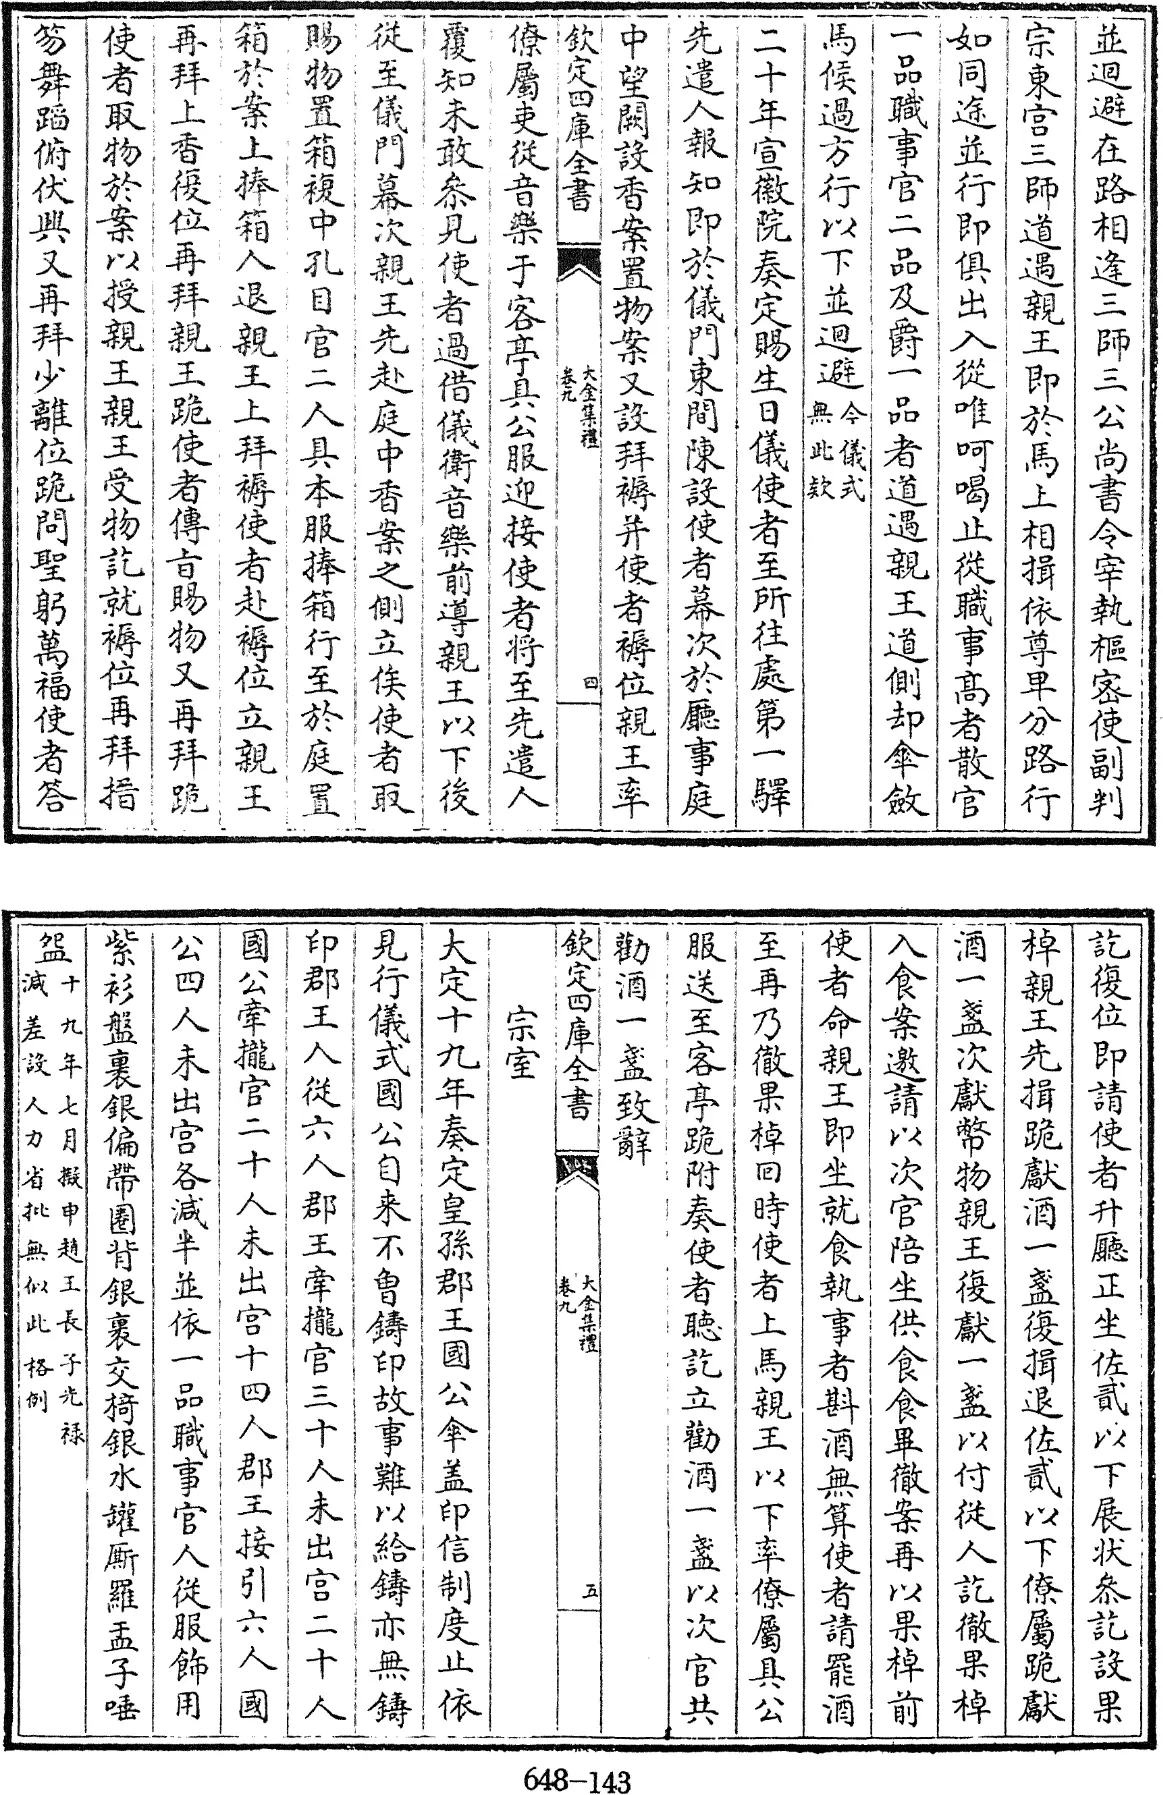 並迴避在路相逢三師三公尚書令宰執樞密使副判
宗東宮三師道遇親王即於馬上相揖依尊卑分路行
如同途並行即俱出入從唯呵喝止從職事高者散官
一品職事官二品及爵一品者道遇親王道側却傘斂
馬候過方行以下並迴避今儀式無此款
二十年宣徽院奏定賜生日儀使者至所往處第一驛
先遣人報知即於儀門東間陳設使者幕次於廳事庭
中望闕設香案置物案又設拜褥并使者褥位親王率
欽定四庫全書 大金集禮卷九 四
僚屬吏從音樂于客亭具公服迎接使者將至先遣人
覆知未敢叅見使者過借儀衛音樂前導親王以下後
從至儀門幕次親王先赴庭中香案之側立俟使者取
賜物置箱複中孔目官二人具本服捧箱行至於庭置
箱於案上捧箱人退親王上拜褥使者赴褥位立親王
再拜上香復位再拜親王跪使者傳㫖賜物又再拜跪
使者取物於案以授親王親王受物訖就褥位再拜搢
笏舞蹈俯伏興又再拜少離位跪問聖躬萬福使者答
訖復位即請使者升廳正坐佐貳以下展状叅訖設果
棹親王先揖跪獻酒一盞復揖退佐貳以下僚屬跪獻
酒一盞次獻幣物親王復獻一盞以付從人訖徹果棹
入食案邀請以次官陪坐供食食畢徹案再以果棹前
使者命親王即坐就食執事者斟酒無算使者請罷酒
至再乃徹果棹回時使者上馬親王以下率僚屬具公
服送至客亭跪附奏使者聽訖立勸酒一盞以次官共
勸酒一盞致辭
欽定四庫全書 大金集禮卷九 五
宗室
大定十九年奏定皇孫郡王國公傘盖印信制度止依
見行儀式國公自来不曾鑄印故事難以給鑄亦無鑄
印郡王人從六人郡王牽攏官三十人未出宮二十人
國公牽攏官二十人未出宮十四人郡王接引六人國
公四人未出宮各減半並依一品職事官人從服飾用
紫衫盤裏銀偏帶圈背銀裏交椅銀水罐厮羅盂子唾
盌十九年七月擬申趙王長子光禄減差設人力省批無似此格例
648-143